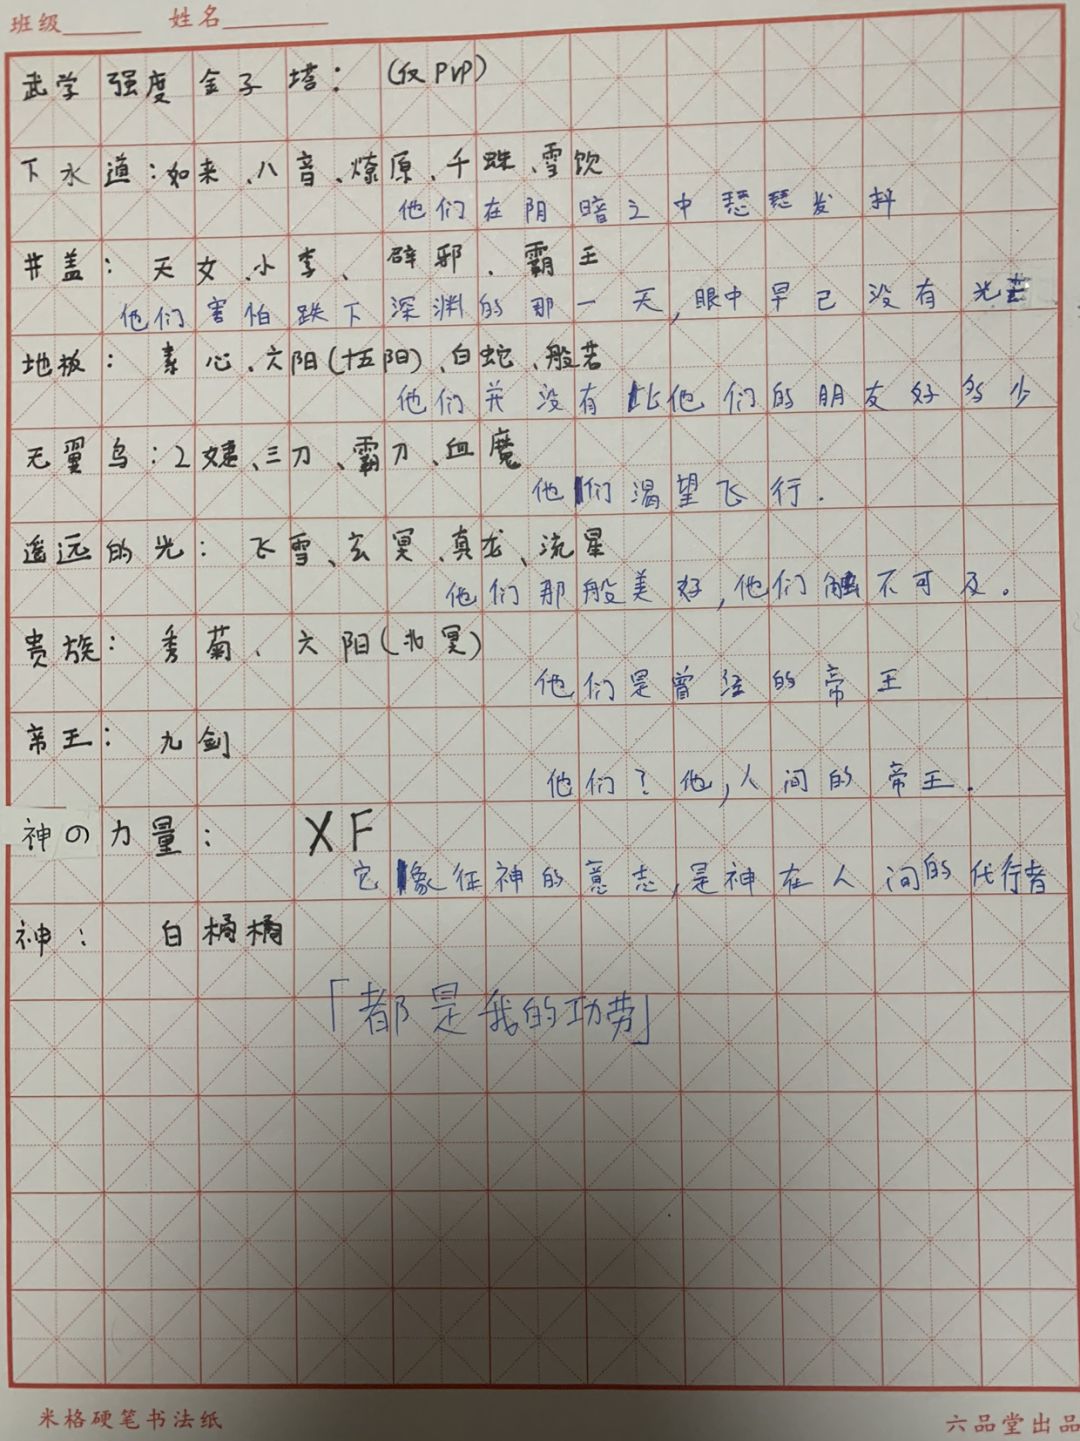 班级 姓名
武学强度金子塔：(仅PVP)
下水道：如来、八音、燎原、千蛛、雪饮
他们在阴暗之中瑟瑟发抖
井盖：天女、小李、辟邪、霸王
他们害怕跌下深渊的那一天,眼中早已没有光芒
地板：素心、六阳(十五阳)、白蛇、般若
他们并没有比他们的朋友好多少
无翼鸟：2婕、三刀、霸刀、血魔
他们渴望飞行.
遥远的光：飞雪、玄冥、真龙、流星
他们那般美好,他们触不可及。
贵族：秀菊、六阳(北冥)
他们是曾经的帝王
帝王：九剑
他们？他,人间的帝王.
神の力量：XF
它象征神的意志,是神在人间的代行者
神：白桶桶
「都是我的功劳」
米格硬笔书法纸 六品堂出品